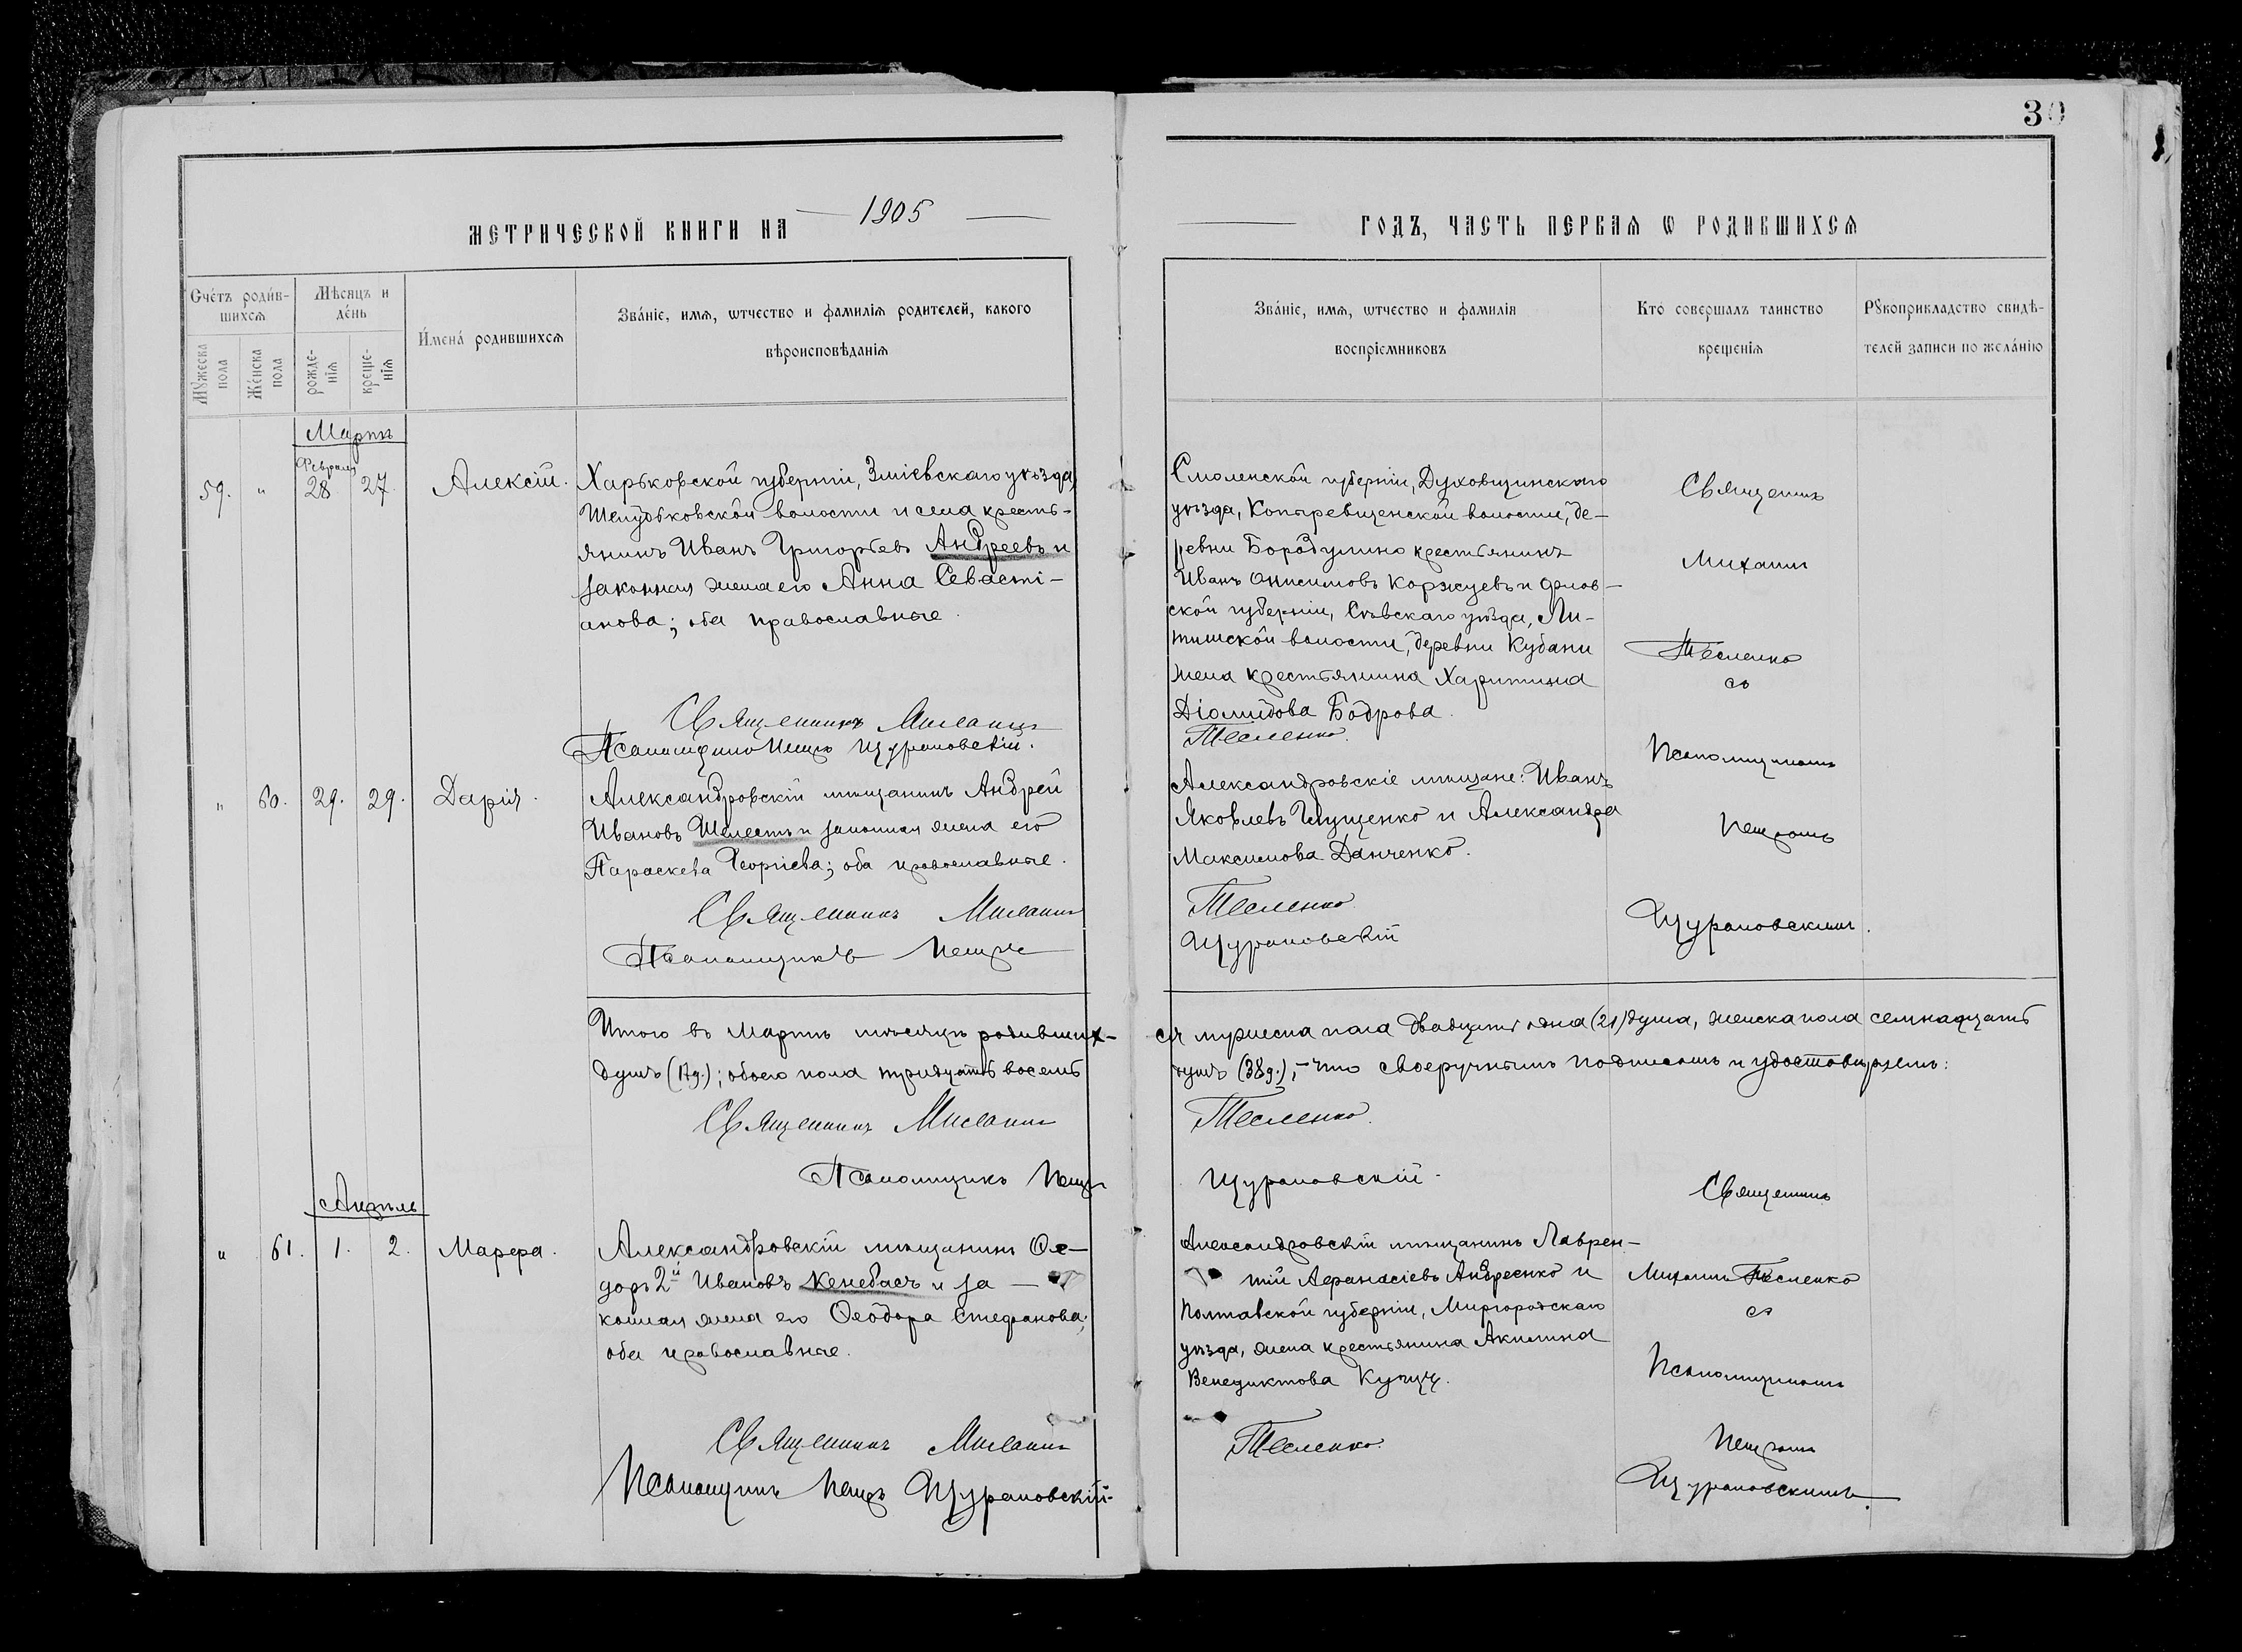 30
МЕТРИЧЕСКОЙ КНИГИ НА 1905
ГОДЪ, ЧАСТЬ ПЕРВАѦ Ѡ РОДИВШИХСѦ
Счétъ роди́в-
шихсѧ
Мѣсяцъ и
де́нь
Мꙋжеска
пола
Же́нска
пола
рожде-
нїѧ
креще-
нїѧ
И́мена́ родившихсѧ
Зва́нїе, имѧ, ѡтчество и фамилїѧ родителей, какого
вѣроисповѣданїѧ
Зва́нїе, имѧ, ѡтчество и фамилїѧ
воспрїемниковъ
Кто̀ совершалъ таинство
крещенїѧ
Рꙋкоприкладство свидѣ-
телей записи по жела́нїю
Мартъ
Февраля
59. " 28. 27. Алексій.
Харьковской губерніи, Зміевскаго уѣзда,
Шелудьковской волости и села кресть-
янинъ Иванъ Григорьевъ Андреевъ и
законная жена его Анна Севасті-
анова; оба православные.
Священникъ Михаилъ
Псаломщикъ Петръ Щурановскій.
Смоленской губерніи, Духовщинскаго
уѣзда, Копыревщенской волости, де-
ревни Бородулино крестьянинъ
Иванъ Онисимовъ Коржуевъ и Орлов-
ской губерніи, Сѣвскаго уѣзда, Ли-
тижской волости, деревни Кубани
жена крестьянина Харитина
Діомидова Бодрова.
Тесленко.
Священникъ
Михаилъ
Тесленко
съ
Псаломщикомъ
Петромъ
Щурановскимъ.
" 60. 29. 29. Дарія.
Александровскій мѣщанинъ Андрей
Ивановъ Шелестъ и законная жена его
Параскева Георгіева; оба православные.
Священникъ Михаилъ
Псаломщикъ Петръ
Александровскіе мѣщане: Иванъ
Яковлевъ Глущенко и Александра
Максимова Данченко.
Тесленко
Щурановскій
Итого въ Мартѣ мѣсяцѣ родивших-
ся мужеска пола двадцать одна (21) душа, женска пола семнадцать
душъ (17 д.); обоего пола тридцать восемь
душъ (38 д.),- что своеручнымъ подписомъ и удостовѣряемъ:
Священникъ Михаилъ
Тесленко.
Псаломщикъ Петръ
Щурановскій.
Апрѣль
" 61. 1. 2. Марфа.
Александровскій мѣщанинъ Ѳе-
доръ 2й Ивановъ Кенебасъ и за-
конная жена его Ѳеодора Стефанова;
оба православные.
Священникъ Михаилъ
Псаломщикъ Петръ Щурановскій.
Александровскій мѣщанинъ Лаврен-
тій Афанасіевъ Андреенко и
Полтавской губерніи, Миргородскаго
уѣзда, жена крестьянина Акилина
Венедиктова
Тесленко.
Священникъ
Михаилъ Тесленко
съ
Псаломщикомъ
Петромъ
Щурановскимъ.